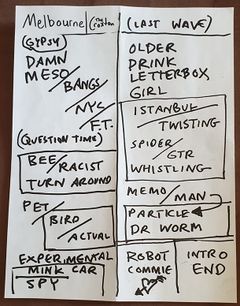 Melbourne (the croxton
(GYPSY)
DAMN
MESO
BANGS
NYC
F.T.
(QUESTION TIME)
BEE/RACIST
TURN AROUND
PET
BIRD
ACTUAL
EXPERIMENTAL
MINK CAR
SPY
(LAST WAVE)
OLDER
DRINK
LETTERBOX
GIRL
ISTANBUL
TWISTING
SPIDER
GTR
WHISTLING
MEMO/MAN
PARTICLE
DR WORM
ROBOT
COMMIE
INTRO
END